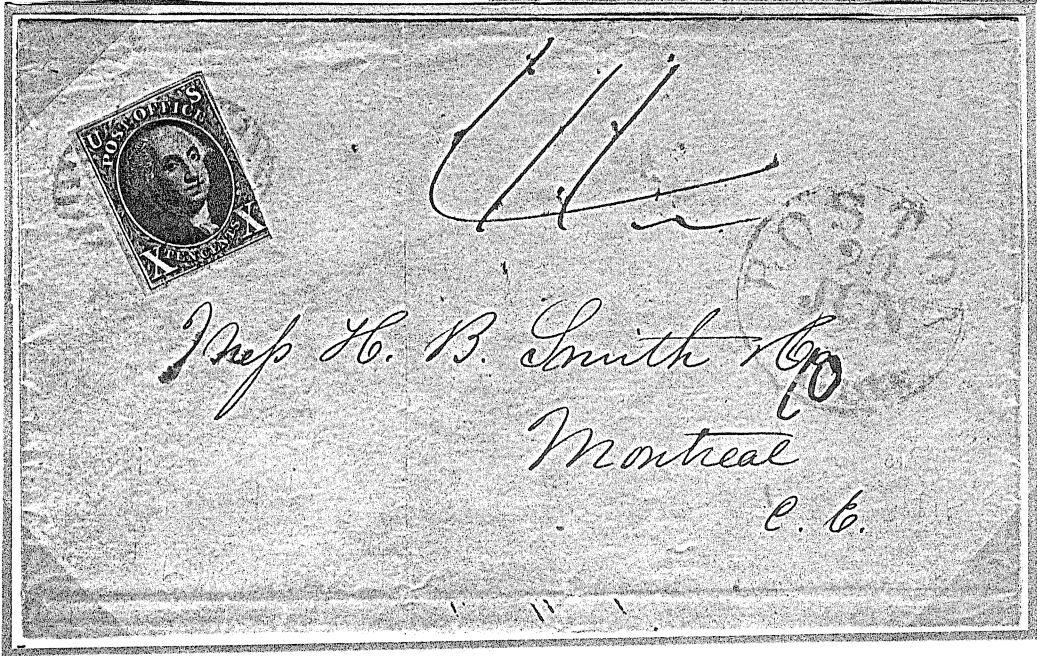 U S
POST OFFICE
X TEN CENTS X
BOSTON
JUN
10
Mess H. B. Smith & Co
Montreal
C. E.